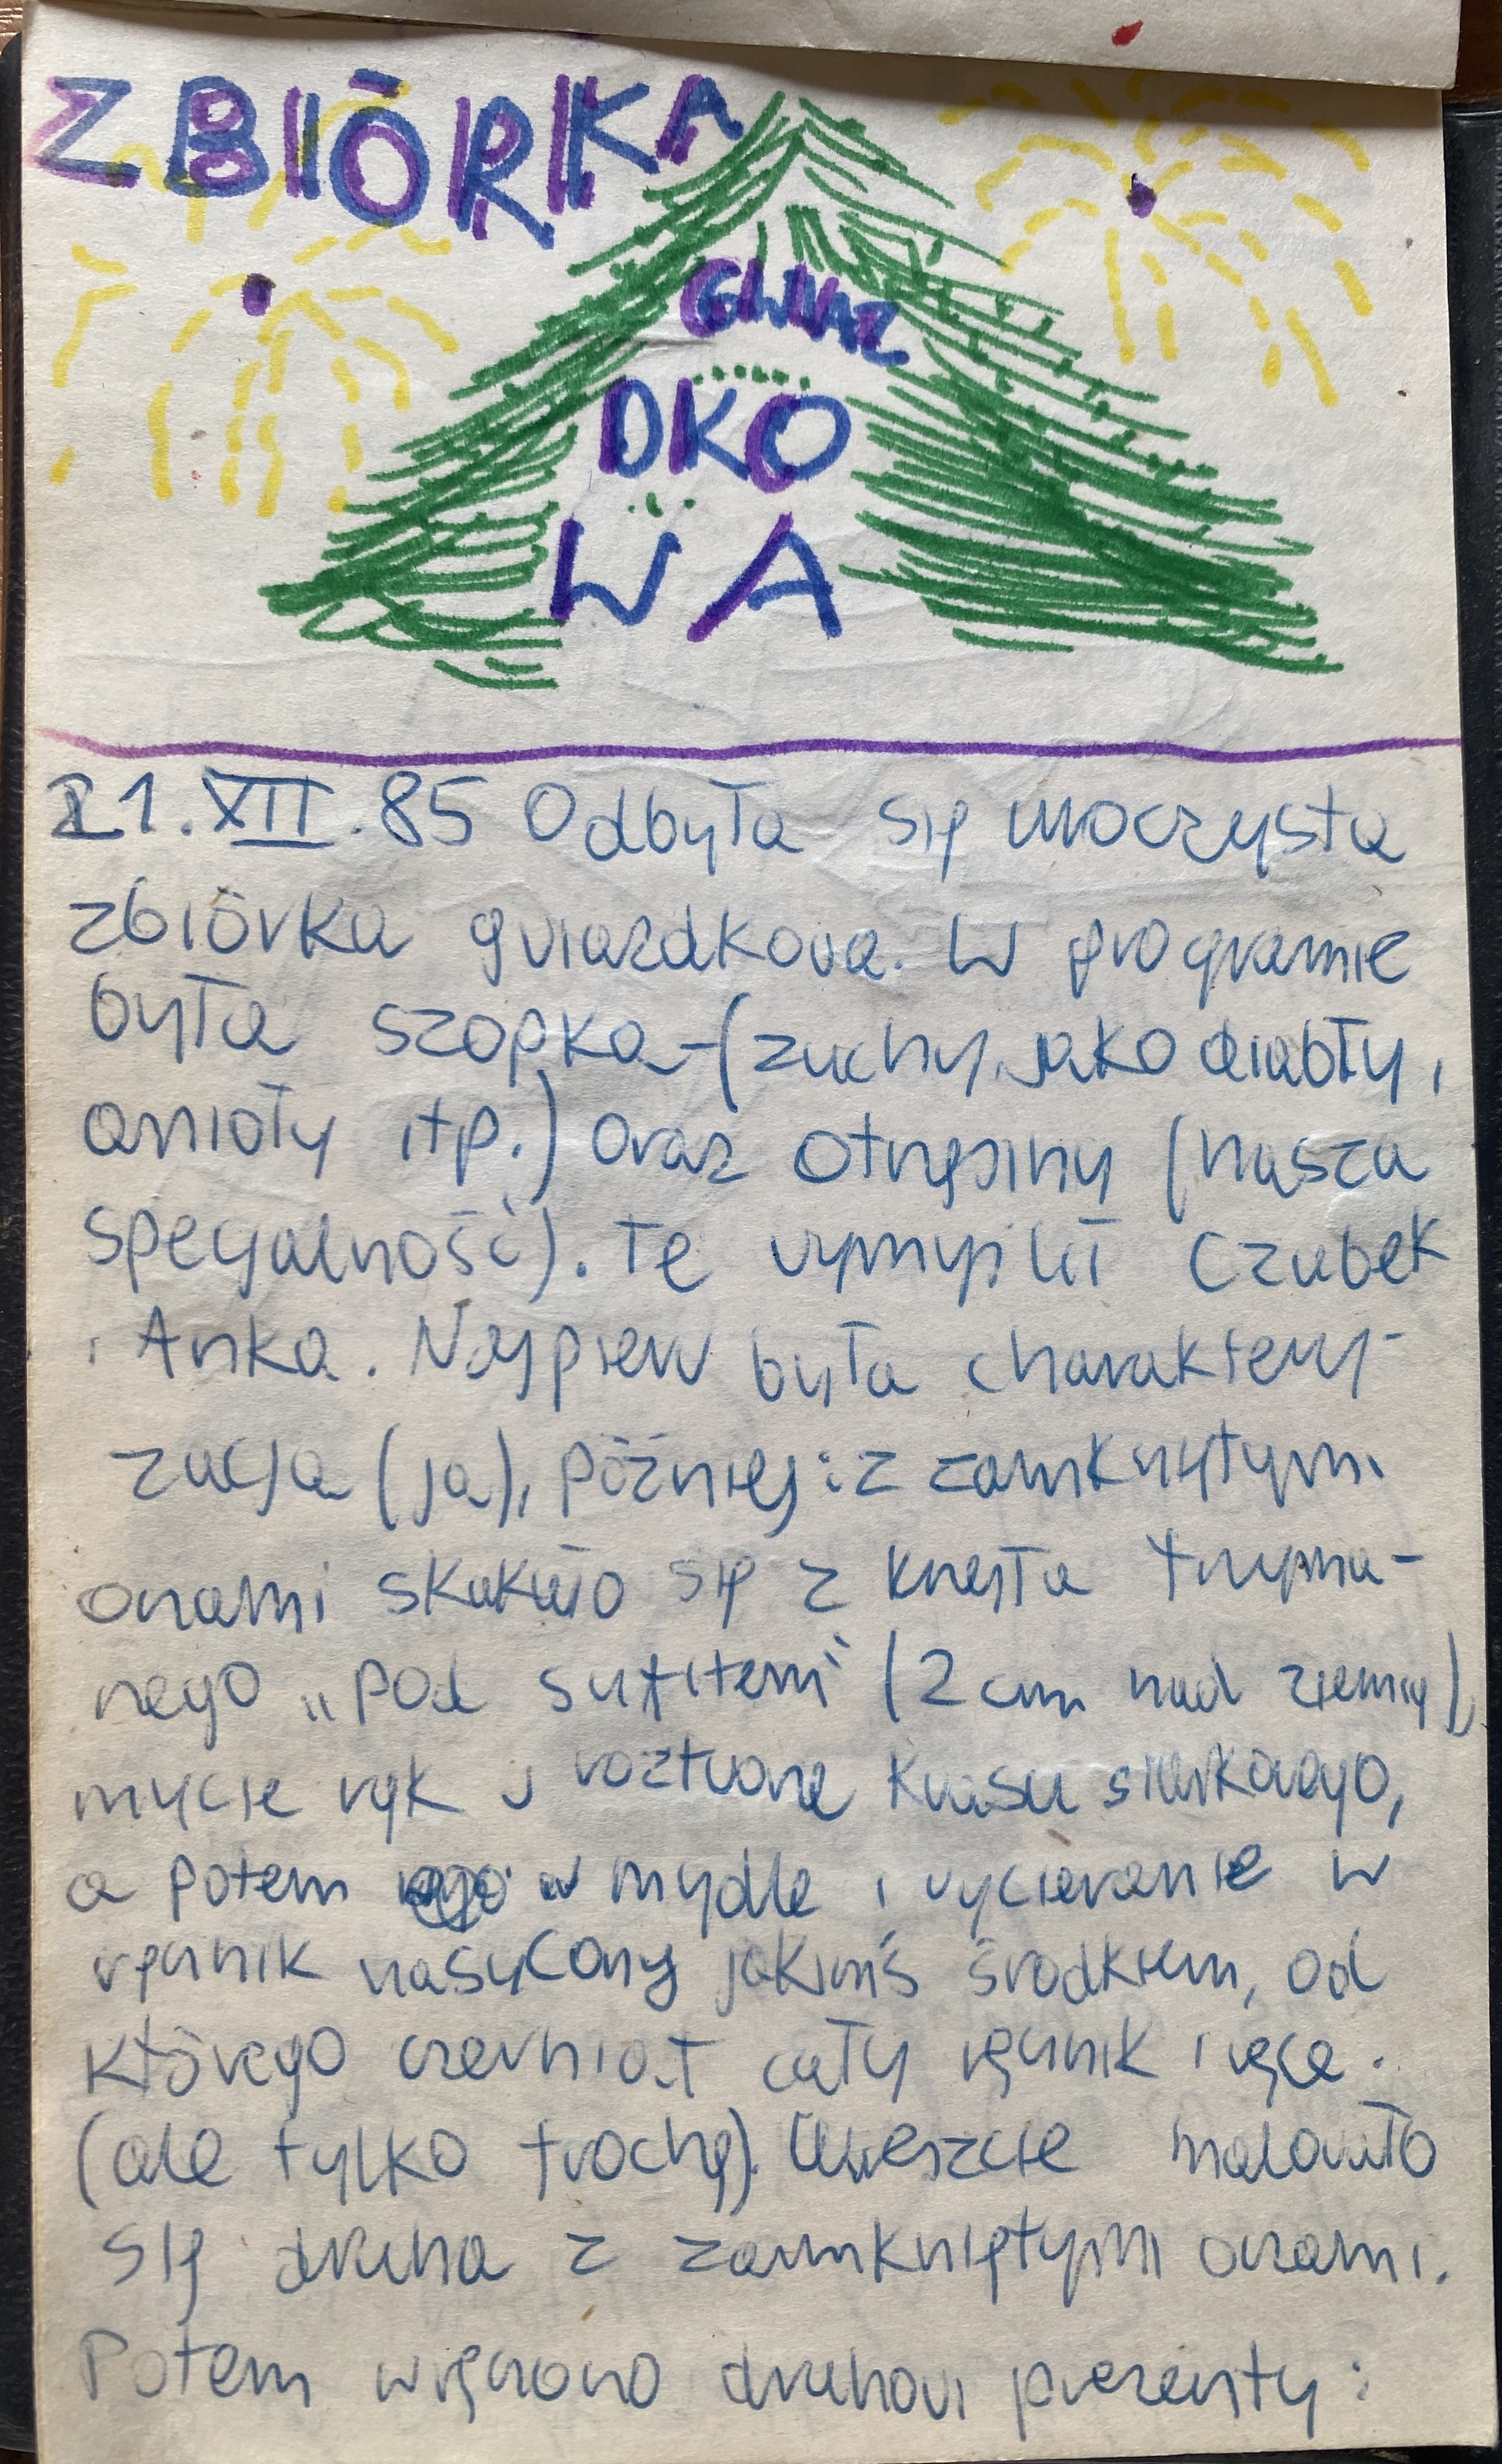 ZBIÓRKA
GWIAZ
DKO
WA
21.XII.85 Odbyła się uroczysta
zbiórka gwiazdkowa. W programie
była szopka-(zuchy jako diabły,
anioły itp.) oraz otrzęsiny (nasza
specjalność). Te wymyślił Czubek
i Anka. Najpierw była charaktery-
zacja (ja), później: z zamkniętymi
oczami skakało się z krzesła trzyma-
nego „pod sufitem" (2 cm nad ziemią),
mycie rąk w roztworze kwasu siarkowego,
a potem w mydle i wycieranie w
ręcznik nasycony jakimś środkiem, od
którego czerniał cały ręcznik i ręce.
(ale tylko trochę). Wreszcie malowało
się druha z zamkniętymi oczami.
Potem wręczono druhowi prezenty: